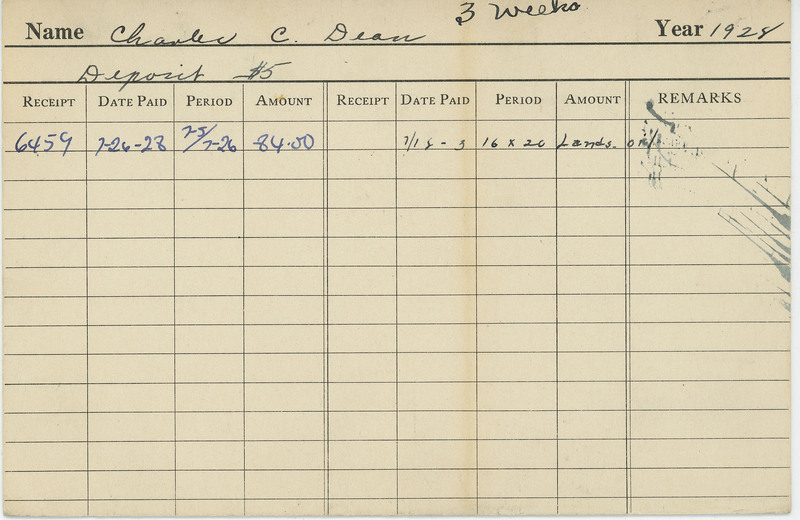 3 Weeks
Name Charles C. Dean Year 1928
Deposit $5
RECEIPT DATE PAID PERIOD AMOUNT RECEIPT DATE PAID PERIOD AMOUNT REMARKS
6459 7-26-28 7-5/7-26 84.00 7/18 - 3 16 x 20 Lands.